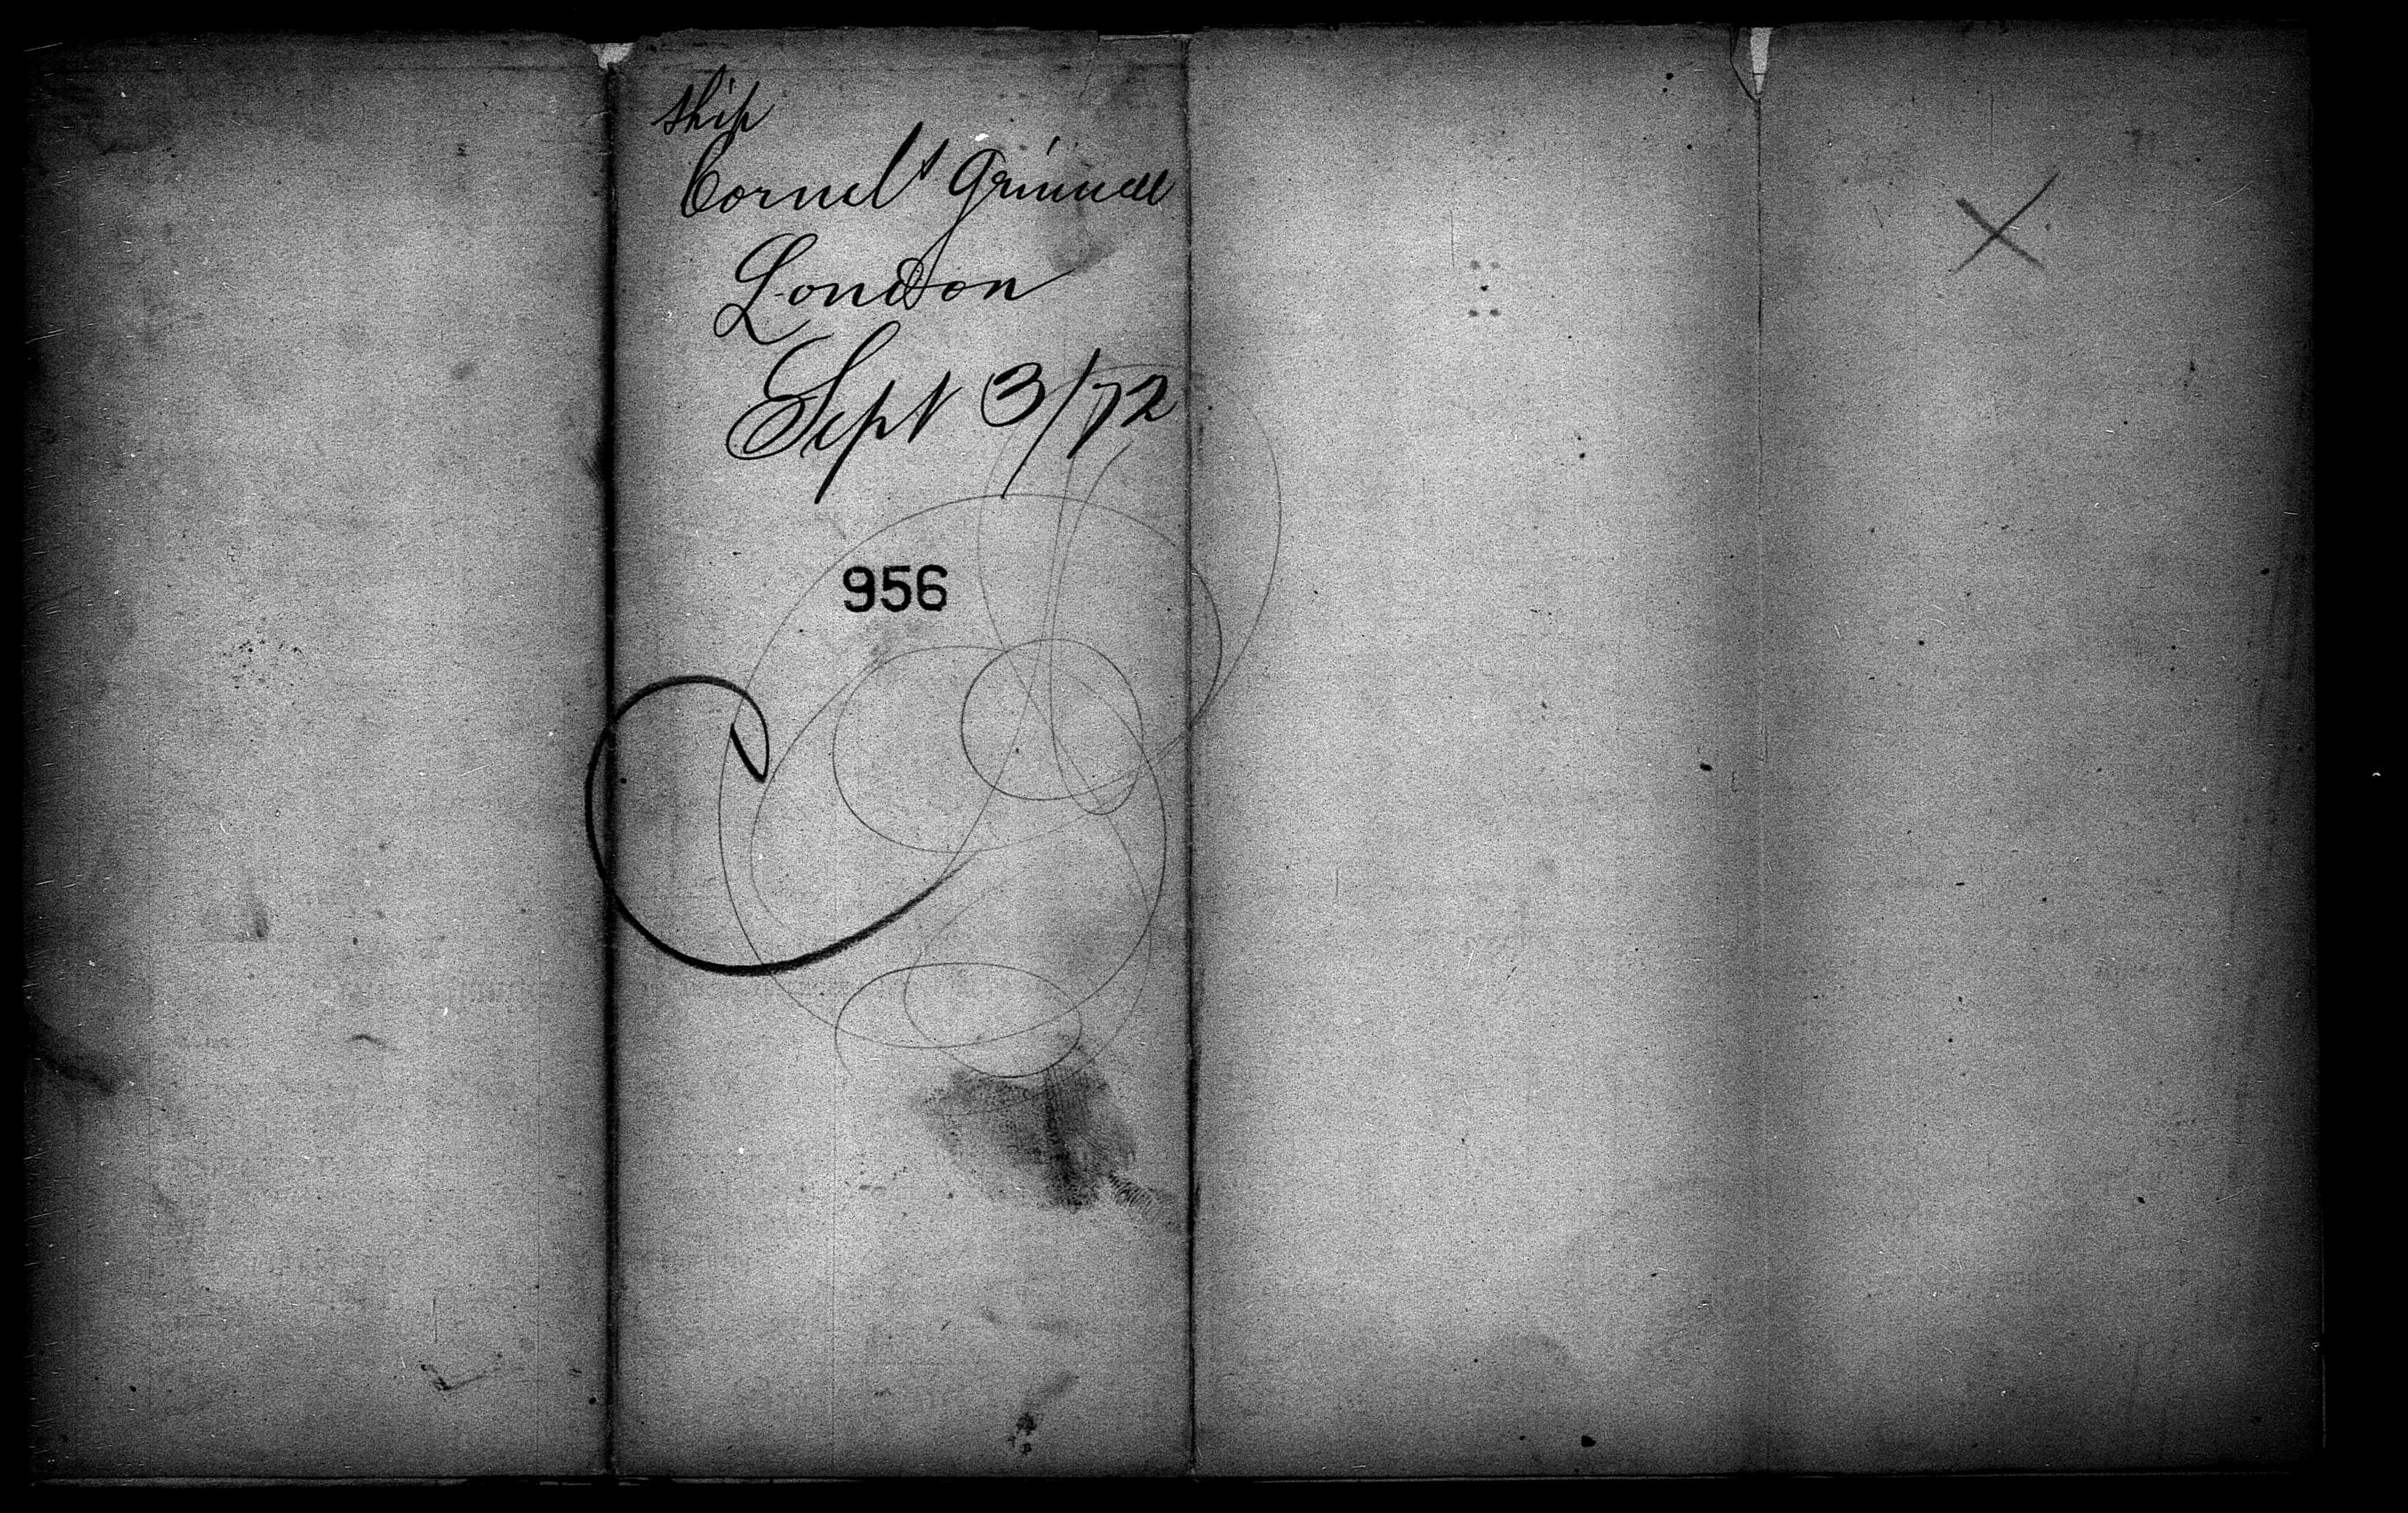 Ship
Cornel^s Grinnell
London
Sept 3/72
956